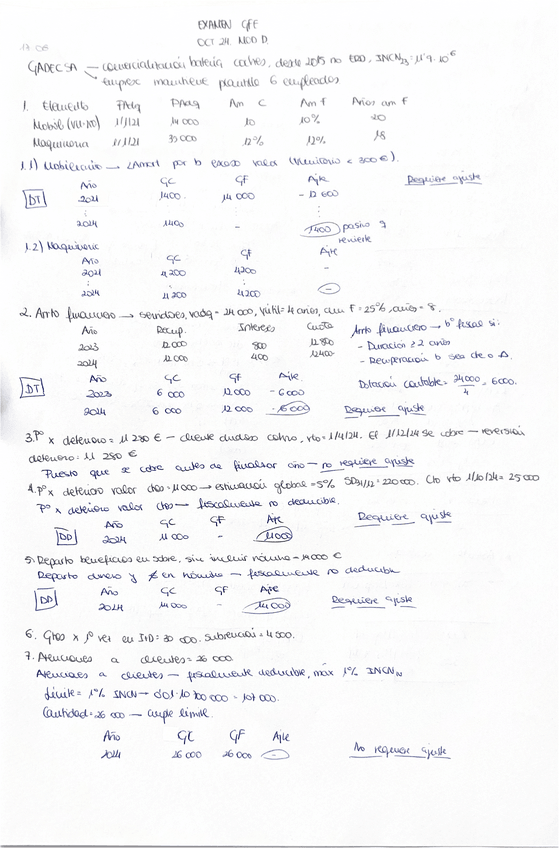 EXAMEN GFE
OCT 24. MOD D.
GADECSA — comercialización batería coches, desde 2015 no ERD, INCN23: 11'9·10⁶
↳ empresa mantiene plantilla 6 empleados
1. Elemento FAdq PAdq Am C Am f Años am f
Mobil (VU<300) 1/1/21 14 000 10 10% 20
Maquinaria 1/1/21 35 000 12% 12% 18
1.1) Mobiliario → LAmort por b escaso valor (Unitario < 300 €). Requiere ajuste
Año GC GF Ajte
DT 2021 1400 14 000 - 12 600
2024 1400 - 1400 positivo q revierte
1.2) Maquinaria
Año GC GF Ajte
2021 4200 4200 -
2024 4 200 4200 -
2. Arrto financiero → servidores, vadq = 24 000, vútil = 4 años, am f = 25%, años = 8.
Año Recup. Interés Cuota Arrto financiero → bº fiscal si:
2023 12 000 800 12 800 - Duración ≥ 2 años
2024 12 000 400 12400 - Recuperación b sea cte o Δ.
Año GC GF Ajte Dotación contable = 24000/4 = 6000.
DT 2023 6 000 12 000 - 6000
2024 6 000 12 000 - 6000 Requiere ajuste
3. Pº x deterioro = 11 280 € — cliente dudoso cobro, vto = 1/4/24. El 1/12/24 se cobra — reversión
deterioro: 11 280 €
Puesto que se cobra antes de finalizar año — no requiere ajuste
4. Pº x deterioro valor ctos = 11 000 → estimación global = 5% SD31/12 = 220 000. Cto vto 1/10/24 = 25 000
Pº x deterioro valor ctos — fiscalmente no deducible.
Año GC GF Ajte Requiere ajuste
DD 2024 11 000 - 11 000
5. Reparto beneficios en sobre, sin incluir nómina = 14 000 €
Reparto dinero y ∉ en nómina — fiscalmente no deducible
Año GC GF Ajte
DD 2024 14 000 - 14 000 Requiere ajuste
6. Gtos x 1ª vez en I+D = 30 000. Subvención = 4 500.
7. Atenciones a clientes = 26 000.
Atenciones a clientes — fiscalmente deducible, máx 1% INCN
Límite = 1% INCN → 0'01 · 10 700 000 = 107 000.
Cantidad = 26 000 — cumple límite.
Año GC GF Ajte
2024 26 000 26 000 - No requiere ajuste